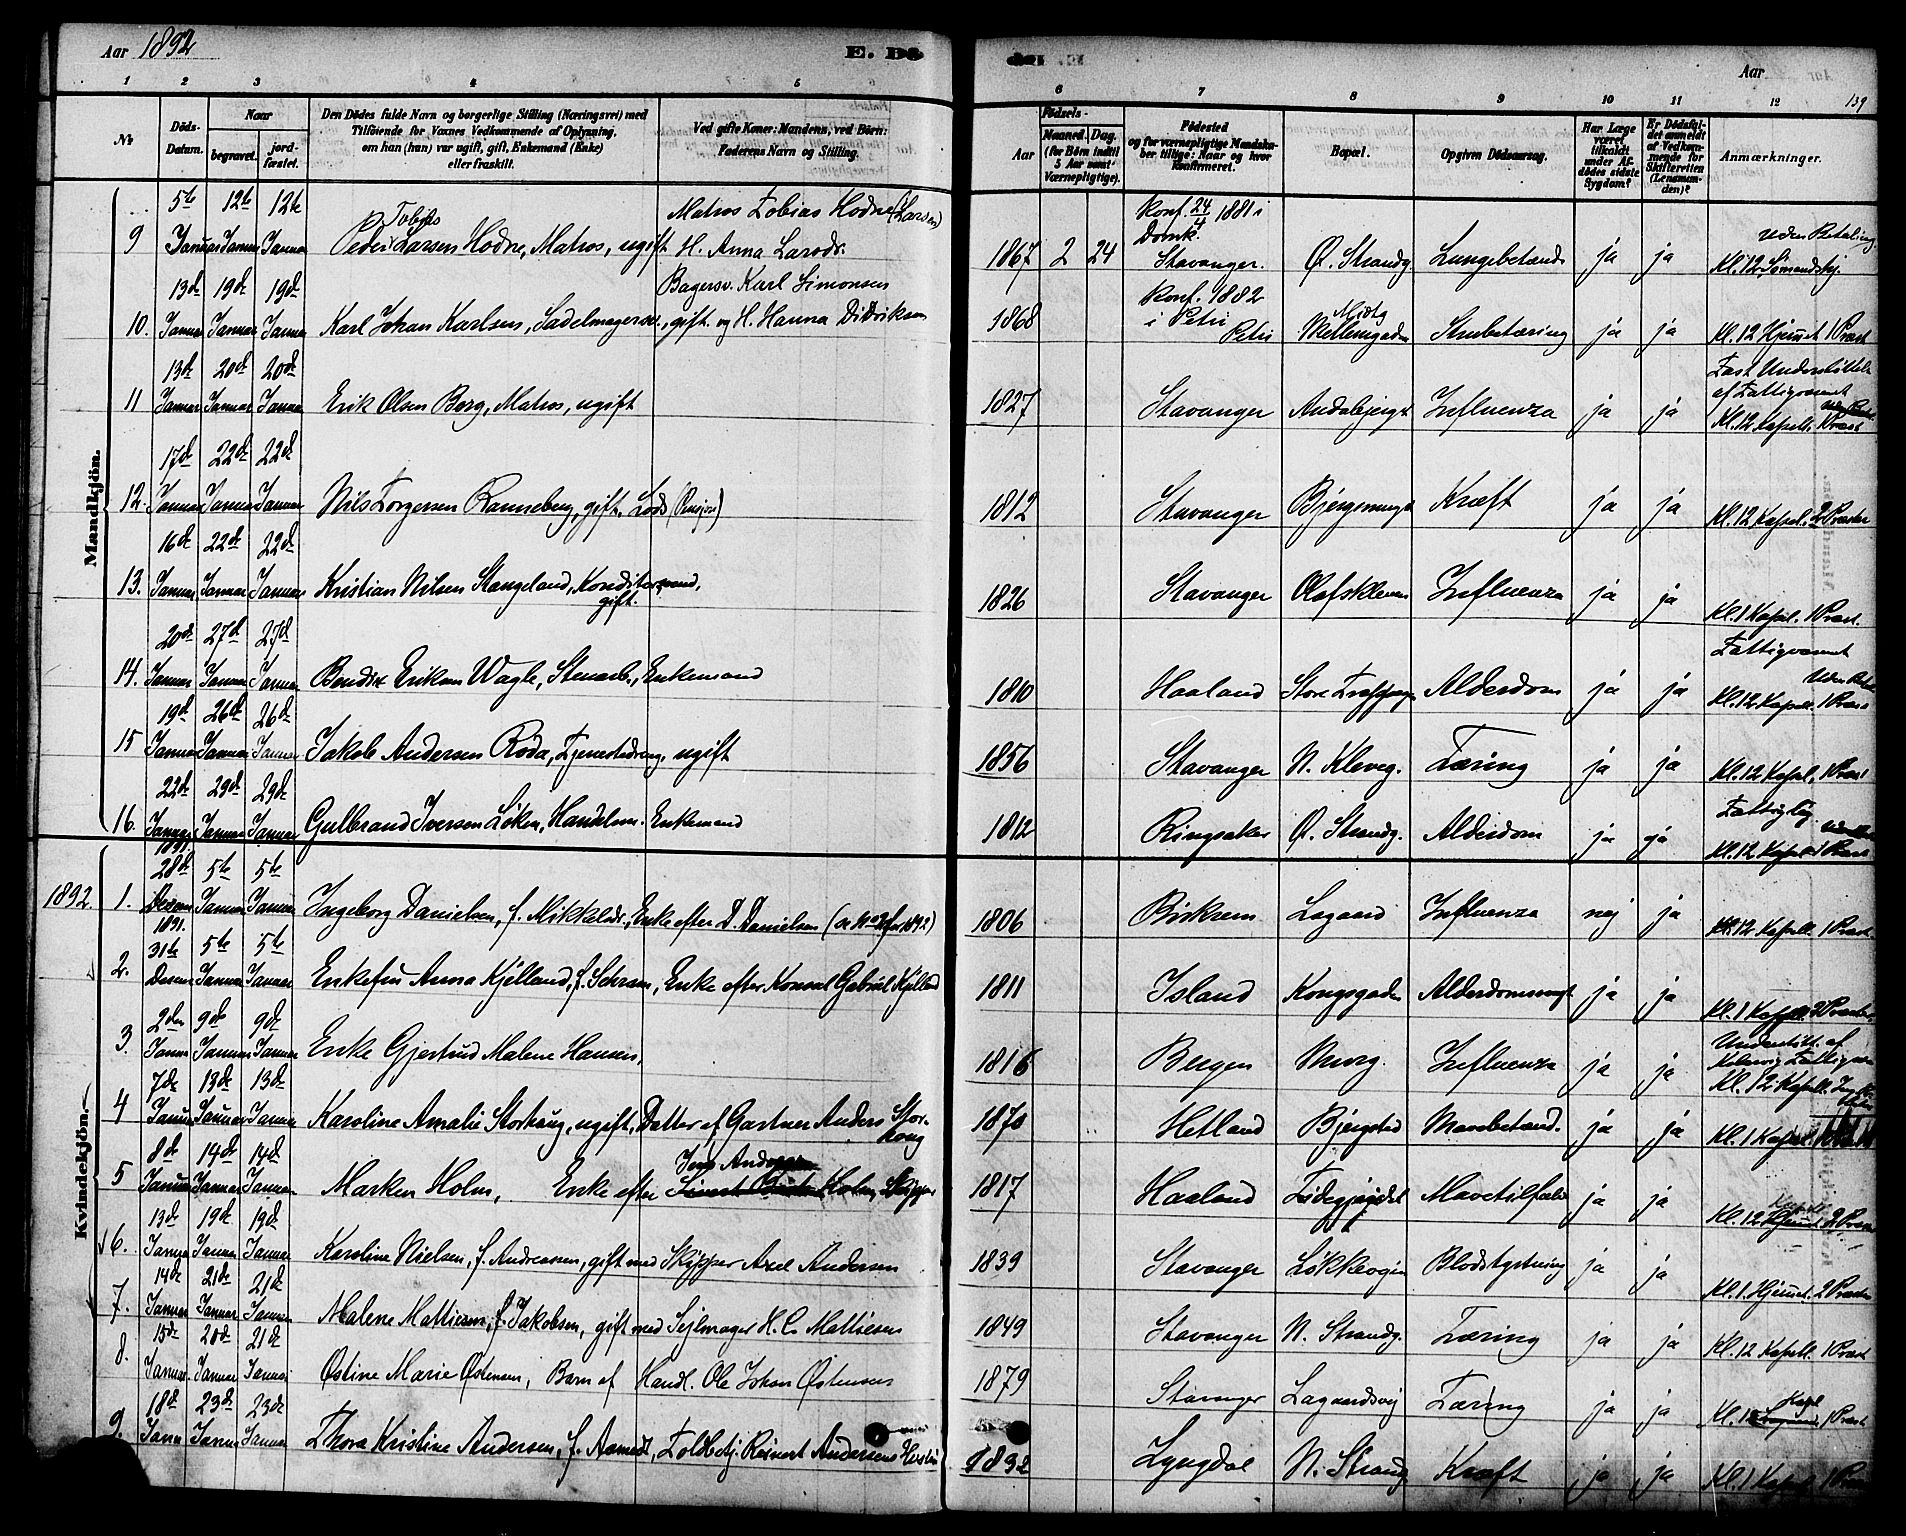 Aar 1892
E. Dø
Aar
139
1 2 3 4 5 6 7 8 9 10 11 12
№
Døds-Datum.
Naar
begravet.
jord-fæstet.
Den Dødes fulde Navn og borgerlige Stilling (Næringsvei) med
Tilføiende for Voxnes Vedkommende af Oplysning,
om han (hun) var ugift, gift, Enkemand (Enke)
eller fraskilt.
Ved gifte Koner: Mandens, ved Børn:
Faderens Navn og Stilling.
Fødsels-
Aar
Maaned. Dag.
(for Børn indtil
5 Aar samt
Værnepligtige).
Fødested
og for værnepligtige Mandska-
ber tillige: Naar og hvor
konfirmeret.
Bopæl.
Opgiven Dødsaarsag.
Har Læge
været
tilkaldt
under Af-
dødes sidste
Sygdom?
Er Dødsfal-
det anmeldt
af Vedkom-
mende for
Skifteretten
(Lensman-
den)?
Anmærkninger.
Mandkjön.
5te 12te 12te Matros Tobias Hodne (Larsen) Konf. 24/4 1881 i Domk. Uden Betaling
9 Januar Januar Januar Peder Larsen Hodne, Matros, ugift H. Anna Larsdr. 1867 2 24 Stavanger. Ø. Strandg. Lungebetænd. ja ja Kl. 12
13de 19de 19de Karl Simonsen Konf. 1882 i Petri
10. Januar Januar Januar Karl Johan Karlsen, Sadelmagersv., gift. og H. Hanna Didriksen 1868 Petri ja ja Kl. 12 Hjemmet 1 Præst
13de 20de 20de Fast Understøttelse af Fattigvæsenet
11 Januar Januar Januar Erik Olsen Borg, Matros, ugift 1827 Stavanger Influenza ja ja Kl. 12 Kapell. 1 Præst
17de 22de 22de
12. Januar Januar Januar Nils Torgersen Ranneberg, gift. Lods 1812 Stavanger Kræft ja ja Kl. 12 Kapel. 2 Præster
16de 22de 22de
13. Januar Januar Januar Kristian Nilsen Stangeland, gift. 1826 Stavanger Olafskleven Influenza ja ja Kl. 1 Kapel. 1 Præst.
20de 27de 27de Fattigvæsenet
14. Januar Januar Januar Bendix Eriksen Wagle, Stenarb., Enkemand 1810 Haaland Store Alderdom ja ja Kl. 12 Kapell. 1 Præst
19de 26de 26de
15 Januar Januar Januar Jakob Andersen Röda, Tjenestedreng, ugift 1856 Stavanger N. Kleveg. Tæring ja ja Kl. 12 Kapel. 1 Præst
22de 29de 29de Fattiglig
16. Januar Januar Januar Gulbrand Iversen Løken, Handelsm. Enkemand 1812 Ringsaker Ø. Strandg. Alderdom ja ja Kl. 12 Kapel. 1 Præst
Kvindekjön.
1891 28de 5te 5te
1892. 1. Januar Januar Ingeborg Danielsen, f. Mikkelsdr., Enke efter D. Danielsen 1806 Birkrem Lagaard Influenza nej ja Kl. 12 Kapell. 1 Præst.
1891. 31te 5te 5te
2. Januar Januar Enkefru Anna Kjelland, f. Schram, Enke efter Konsul Gabriel Kjelland 1811 Island Kongsgaden ja ja Kl. 1 Kapell. 2 Præster.
2den 9de 9de
3. Januar Januar Enke Gjertrud Malene Hansen, 1816 Bergen Influenza ja ja Understött. af Kl. 12 Kapell.
7de 13de 13de
4 Januar Januar Januar Karoline Amalie Storhaug, ugift, Datter af Gartner Anders Storhaug 1870 Hetland Bjergsted Mavebetænd. ja ja Kl. 1 Kapel.
8de 14de 14de Jens Andreas
5 Januar Januar Januar Marken Holm, Enke efter Holm, Skipper 1817 Haaland Mavetilfælde ja ja Kl. 12 2 Præster
13de 19de 19de
6. Januar Januar Januar Karoline Nielsen, f. Andreassen, gift med Skipper Axel Andersen 1839 Stavanger Blodstyrtning ja ja Kl. 1 Hjemmet. 2 Præster
14de 21de 21de
7. Januar Januar Januar Malene Mattiesen, f. Jakobsen, gift med Sejlmager H. C. Mattiesen 1849 Stavanger N. Strandg. Tæring ja ja Kl. 12 Kapell. 1 Præst
15de 20de 21de
8. Januar Januar Januar Østine Marie Østensen, Barn af Handl. Ole Johan Østensen 1879 Stavanger Lagaardsvej Tæring ja ja 1 Præst
18de 23de 23de
9. Januar Thora Kristine Andersen, f. Toldbetj. Reinert Andersen 1832 Lyngdal N. Strandg Kræft ja ja Kl. 1 Kapel. 1 Præst